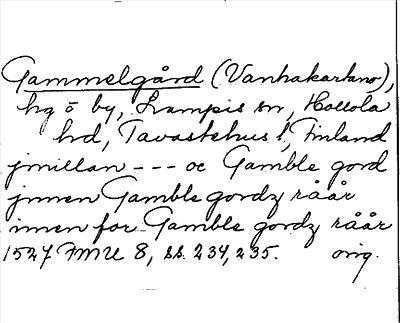 Gammelgård (Vanhakartano),
hg o by, Lampis sn, Hollola
hd, Tavastehus l, Finland
jmillan --- oc Gamble gord
jnnen Gamble gordz råår
innen for Gamble gordz råår
1527 FMU 8, ss. 234, 235. orig.